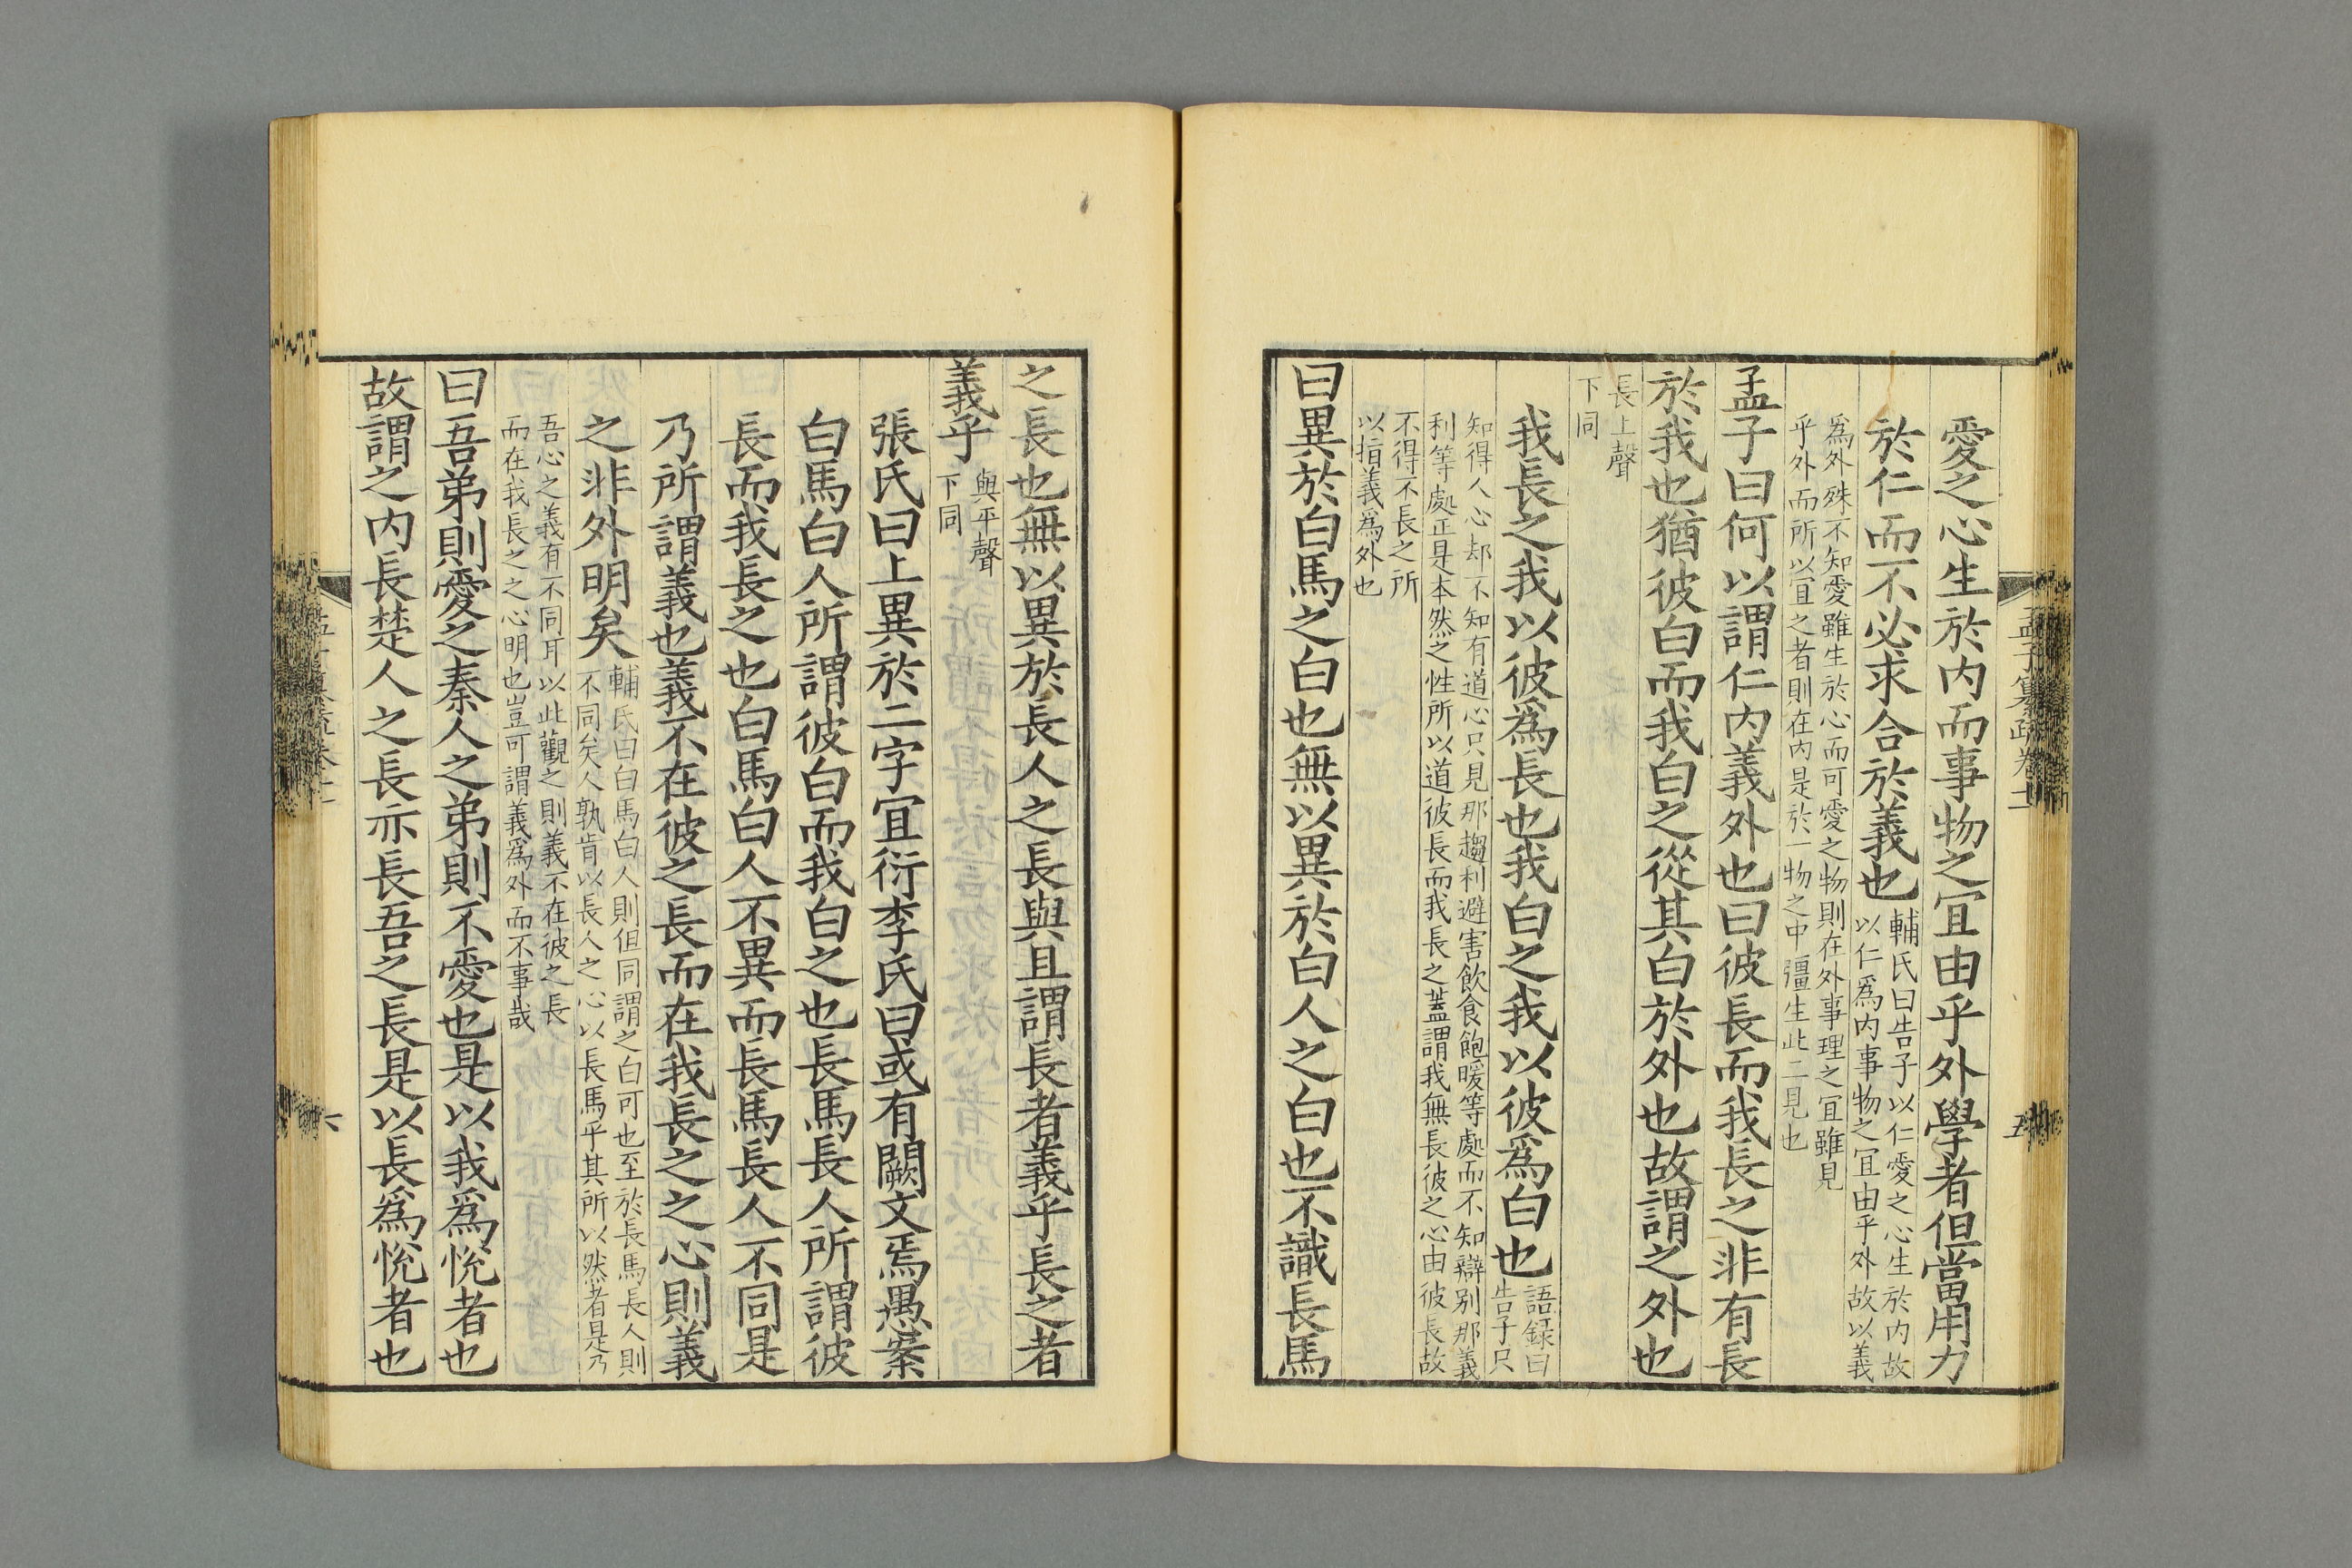 愛之心生於内而事物之宜由乎外學者但當用力
於仁而不必求合於義也
輔氏曰告子以仁愛之心生於内故
以仁爲内事物之宜由乎外故以義
爲外殊不知愛雖生於心而可愛之物則在外事理之宜雖見
乎外而所以宜之者則在内是於一物之中彊生此二見也
孟子曰何以謂仁内義外也曰彼長而我長之非有長
於我也猶彼白而我白之從其白於外也故謂之外也
長上聲
下同
我長之我以彼爲長也我白之我以彼爲白也
語録曰
告子只
知得人心却不知有道心只見那趨利避害飲食飽暖等處而不知辯别那義
利等處正是本然之性所以道彼長而我長之蓋謂我無長彼之心由彼長故
不得不長之所
以指義爲外也
曰異於白馬之白也無以異於白人之白也不識長馬
孟子纂疏卷十一
五
之長也無以異於長人之長與且謂長者義乎長之者
義乎
與平聲
下同
張氏曰上異於二字宜衍李氏曰或有闕文焉愚案
白馬白人所謂彼白而我白之也長馬長人所謂彼
長而我長之也白馬白人不異而長馬長人不同是
乃所謂義也義不在彼之長而在我長之之心則義
之非外明矣
輔氏曰白馬白人則但同謂之白可也至於長馬長人則
不同矣人孰肯以長人之心以長馬乎其所以然者是乃
吾心之義有不同耳以此觀之則義不在彼之長
而在我長之之心明也豈可謂義爲外而不事哉
曰吾弟則愛之秦人之弟則不愛也是以我爲悅者也
故謂之内長楚人之長亦長吾之長是以長爲悅者也
六